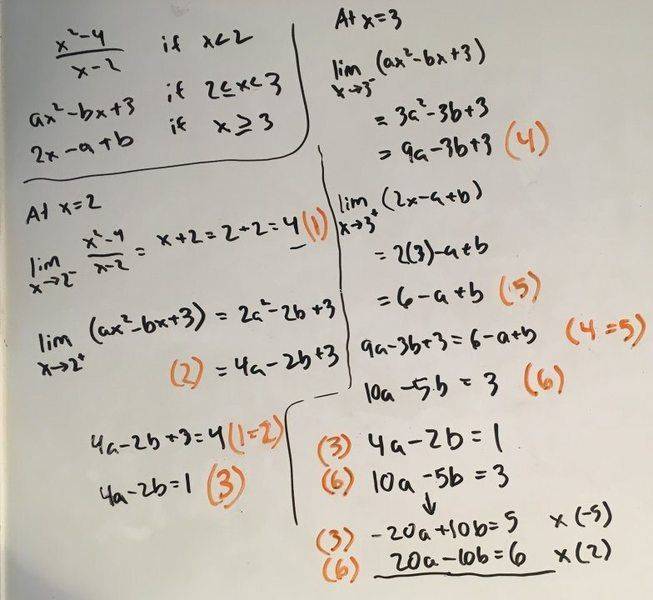 x²-4 / x-2 if x<2
ax²-bx+3 if 2≤x<3
2x-a+b if x≥3
At x=2
lim x→2⁻ x²-4 / x-2 = x+2 = 2+2 = 4 (1)
lim x→2⁺ (ax²-bx+3) = 2a²-2b+3
(2) = 4a-2b+3
4a-2b+3=4 (1=2)
4a-2b=1 (3)
At x=3
lim x→3⁻ (ax²-bx+3)
= 3a²-3b+3
= 9a-3b+3 (4)
lim x→3⁺ (2x-a+b)
= 2(3)-a+b
= 6-a+b (5)
9a-3b+3=6-a+b (4=5)
10a-5b=3 (6)
(3) 4a-2b=1
(6) 10a-5b=3
↓
(3) -20a+10b=5 x(-5)
(6) 20a-10b=6 x(2)